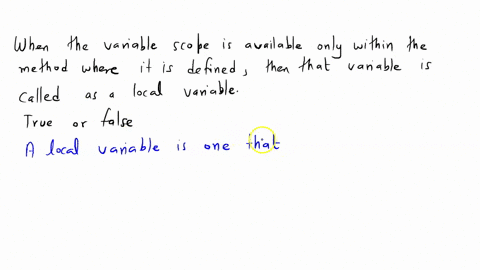 When the variable scope is available only within the
method where it is defined, then that variable is
called as a local variable.
True or false
A local variable is one that